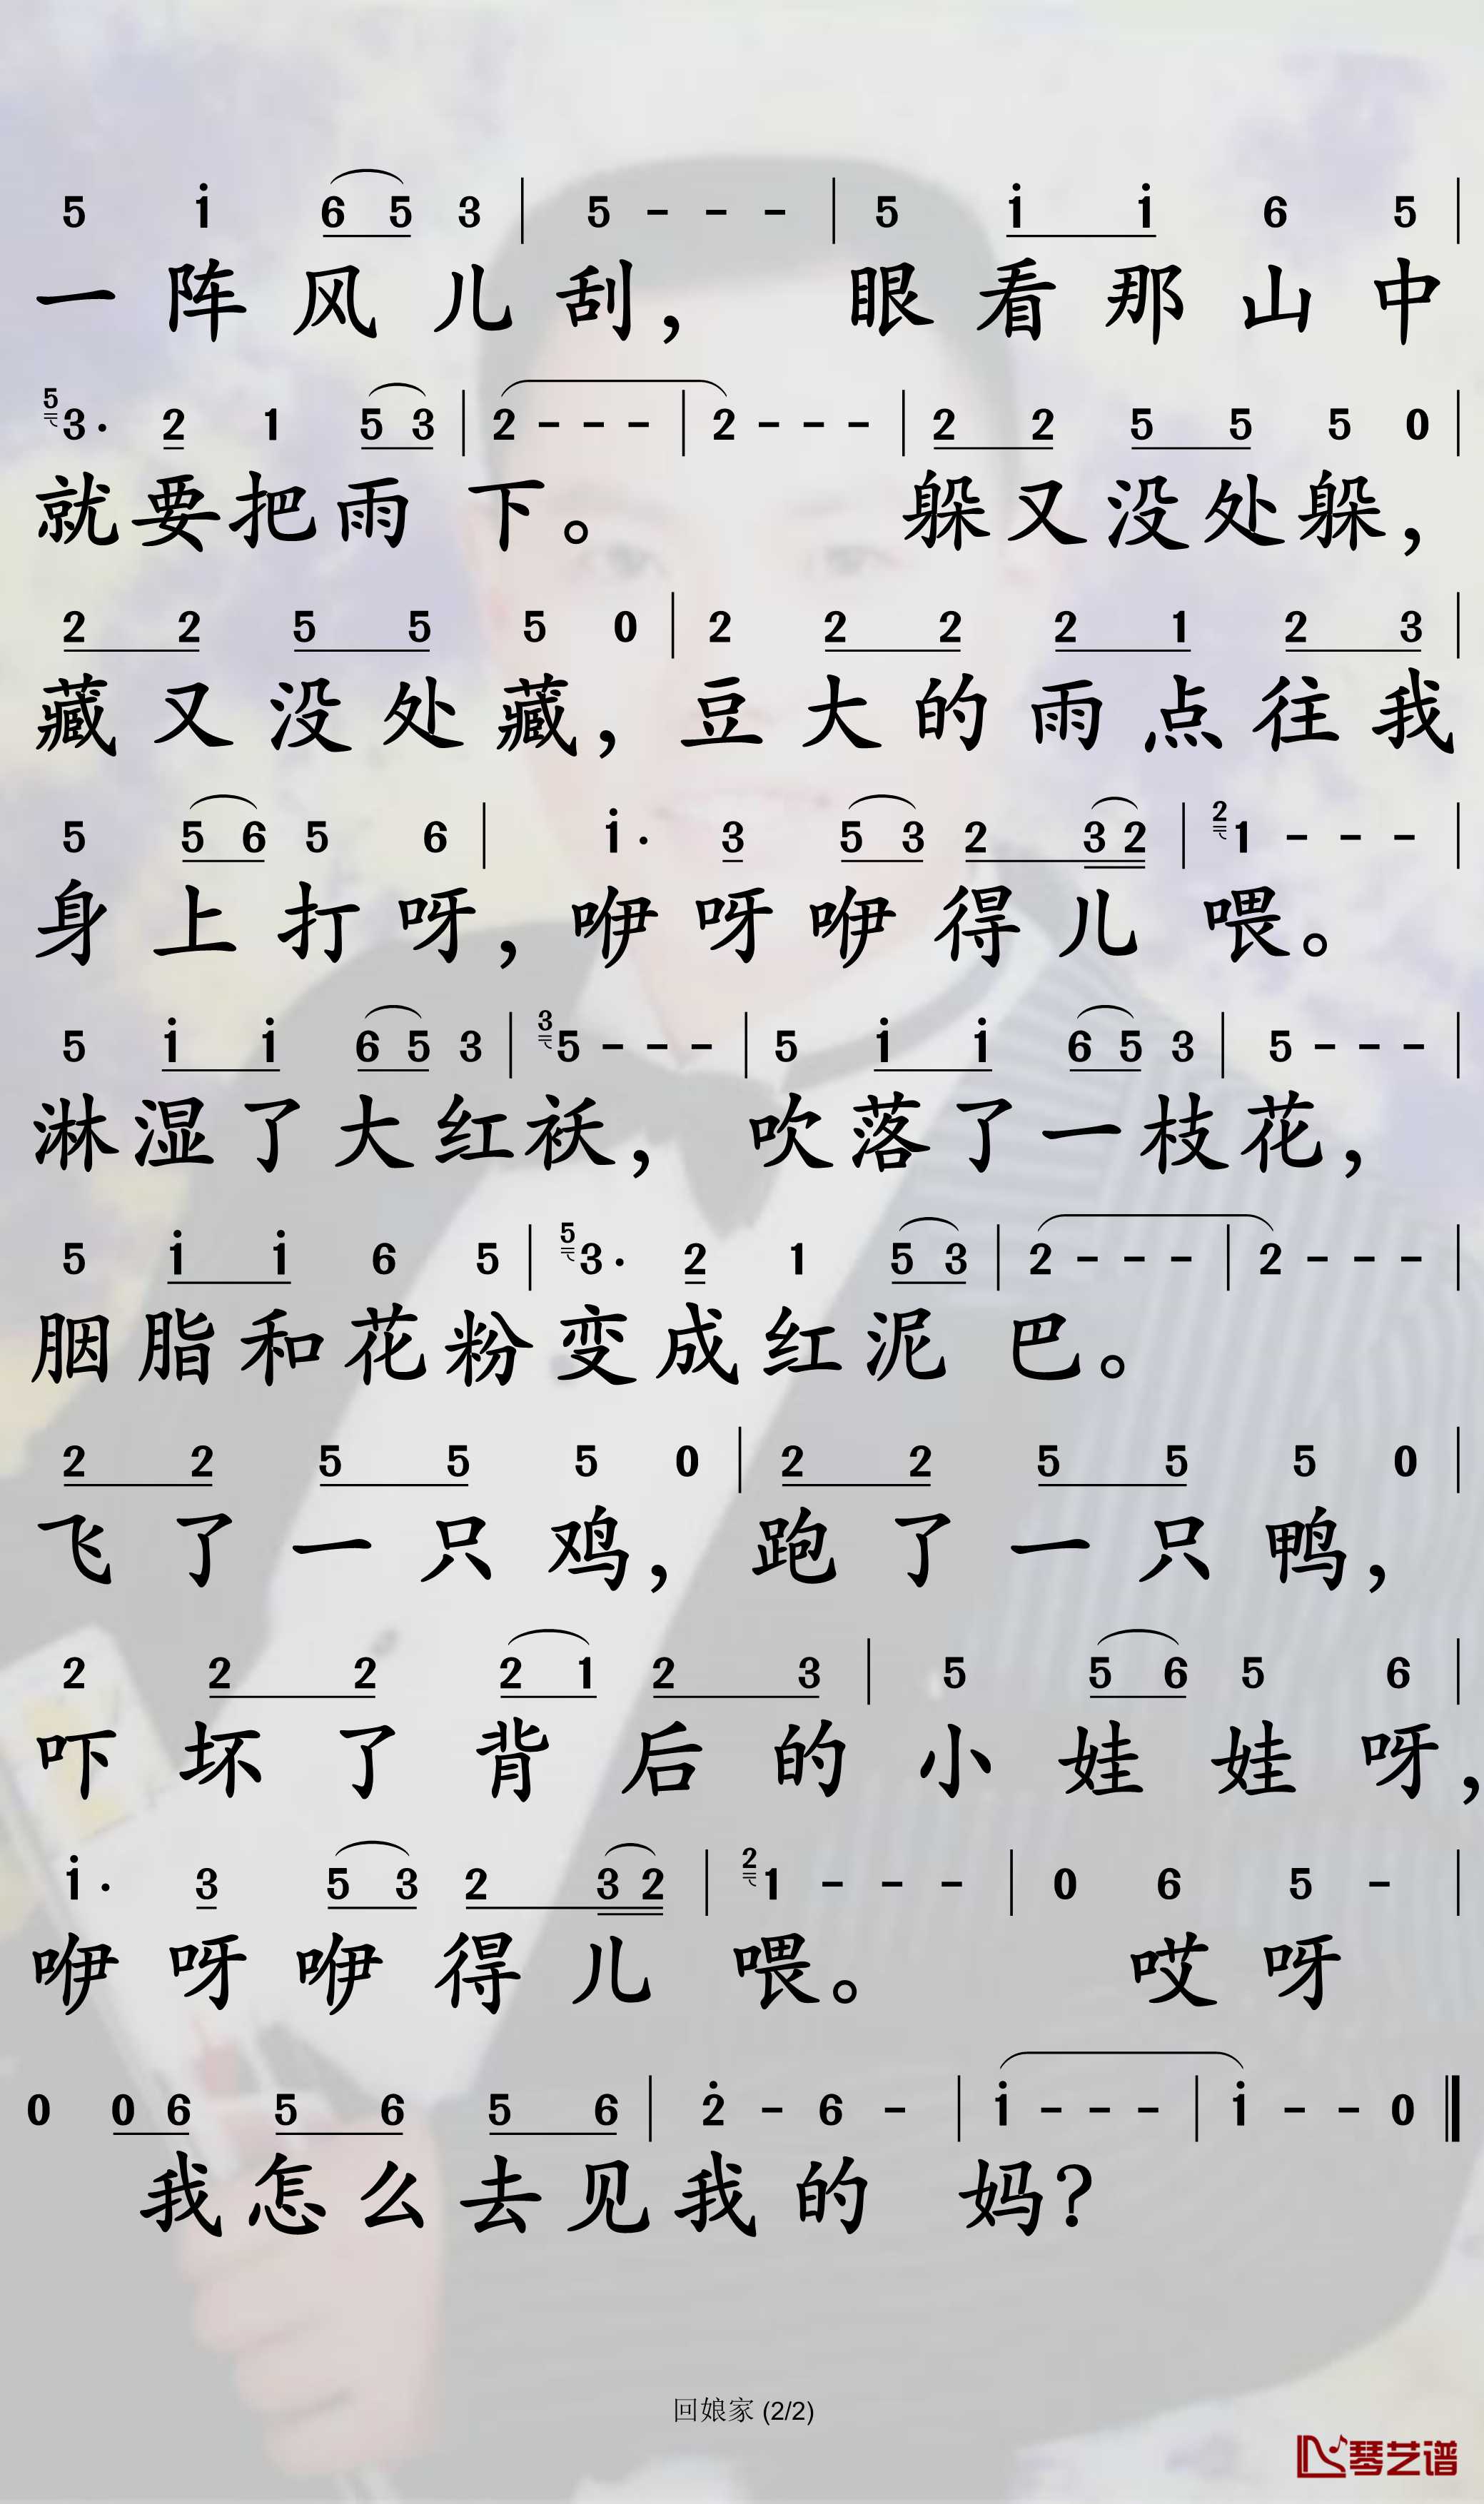 5 i 6 5 3 | 5 - - - | 5 i i 6 5 |
一阵风儿刮， 眼看那山中
5 3· 2 1 5 3 | 2 - - - | 2 - - - | 2 2 5 5 5 0 |
就要把雨下。 躲又没处躲，
2 2 5 5 5 0 | 2 2 2 2 1 2 3 |
藏又没处藏，豆大的雨点往我
5 5 6 5 6 | i· 3 5 3 2 3 2 | 2 1 - - - |
身上打呀，咿呀咿得儿喂。
5 i i 6 5 3 | 3 5 - - - | 5 i i 6 5 3 | 5 - - - |
淋湿了大红袄， 吹落了一枝花，
5 i i 6 5 | 5 3· 2 1 5 3 | 2 - - - | 2 - - - |
胭脂和花粉变成红泥巴。
2 2 5 5 5 0 | 2 2 5 5 5 0 |
飞了一只鸡，跑了一只鸭，
2 2 2 2 1 2 3 | 5 5 6 5 6 |
吓坏了背后的小娃娃呀，
i· 3 5 3 2 3 2 | 2 1 - - - | 0 6 5 - |
咿呀咿得儿喂。 哎呀
0 0 6 5 6 5 6 | 2̇ - 6 - | i - - - | i - - 0 ‖
我怎么去见我的妈?
回娘家 (2/2)
琴艺谱